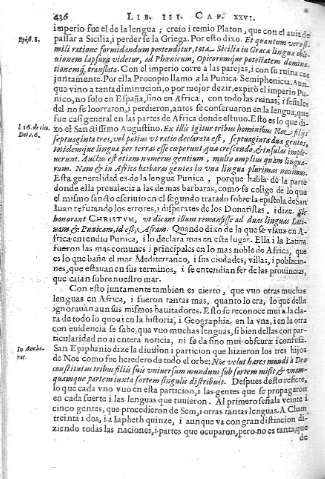 436 LIB. III. CAP. XXVI.
imperio fue el de la lengua; creo i temio Platon, que con el auia de
Epist. 8. pallar a Sicilia, i perder se la Griega. Por esto dixo. Et quantum verosi-
mili ratione formidandum portenditur, tota Sicilia in Graca lingua obli-
nionem lapsura videtur, ad Phœnicum, Opicorumque potestatem dominа-
tionemq; translata. Con el imperio corre a las parejas, i con su ruina cae
juntamente. Por ella Procopio llamo a la Punica Semiphenicia. Aun-
que vino a tanta diminucion, o por mejor dezir, expirò el imperio Pu-
nico, no solo en España, sino en Africa, con todo las ruinas, i señales
del no se borraron, i perderon, antes se conseruaron en la lengua, que
fue casi general en las partes de Africa donde estuuo. Esto es lo que di-
l. 16. de ciu. xo el Sanctissimo Augustino. Ex illis igitur tribus hominibus Noe filijs
Dei c. 6. septuaginta tres, vel potius vt ratio declarata est, septuaginta duæ gentes,
totidemque linguæ per terras esse cœperunt quæ crescendo, & insulas imple-
uerunt. Auctus est etiam numerus gentium, multo amplius quàm lingua-
rum. Nam & in Africa barbaras gentes in vna lingua plurimas nouimus.
Esta generalidad es de la lengua Punica, porque habla de la parte
donde ella preualecia a las de mas barbaras, como se colige de lo que
el mismo sancto escriuio en el segundo tratado sobre la epistola de San
Iuan refutando los errores, i disparates de los Donatistas, idixo. Sic
honorant CHRISTVM, vt dicant illum remansisse ad duas linguas Lati-
nam & Punicam, id est, Afram. Quando dixo de la que se vsaua en A-
frica entendio Punica, i lo declara mas en este lugar. Ella i la Latina
fueron las mas comunes i principales en lo mas noble de Africa, que
es lo que baña el mar Mediterraneo, i sus ciudades, villas, i poblacio-
nes, que estauan en sus terminos, i se entendian ser de las prouincias,
que caian sobre nuestro mar.
Con esto juntamente tambien es cierto, que vuo otras muchas
lenguas en Africa, i fueron tantas mas, quanto lo era, lo que della
ignorauàn aun sus mismos habitadores. Esto se reconoce mui a la cla-
ra de todo lo que ai en la historia, i Geographia, en la vna, i en la otra
con euidencia se sabe, que vuo muchas lenguas, si bien dellas con par-
ticularidad no ai entera noticia, ni se da sino mui obscura i confusa.
In Anchora-
tus. San Epiphanio dize la diuision i particion que hizieron los tres hijos
de Noe como heredero de todo el orbe; Noe velut hæres mundi à Deo
constitutus tribus filiis suis vniuersum mundum sub sortem misit & vnam-
quamque partem iuxta sortem singulis distribuit. Despues desto refiere,
lo que cada vno vuo en esta particion, i las gentes que se propagaron
en cada suerte i las lenguas que tuuieron. Al primero señala veinte i
cinco gentes, que procedieron de Sem, i otras tantas lenguas. A Cham
treinta i dos, i a Iapheth quinze, i aunque va con gran distincion di-
ziendo todas las naciones, i partes que ocuparon, pero no es tanta, que
de